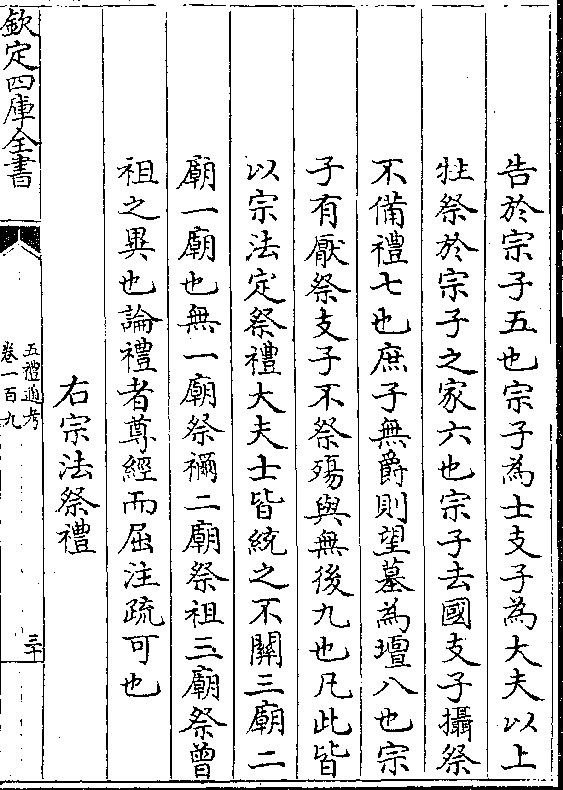 告於宗子五也宗子為士支子為大夫以上
牡祭於宗子之家六也宗子去國支子攝祭
不備禮七也庶子無爵則望墓為壇八也宗
子有厭祭支子不祭殤與無後九也凡此皆
以宗法定祭禮大夫士皆統之不關三廟二
廟一廟也無一廟祭禰二廟祭祖三廟祭曾
祖之異也論禮者尊經而屈注疏可也
右宗法祭禮
欽定四庫全書
五禮通考
卷一百九
三十